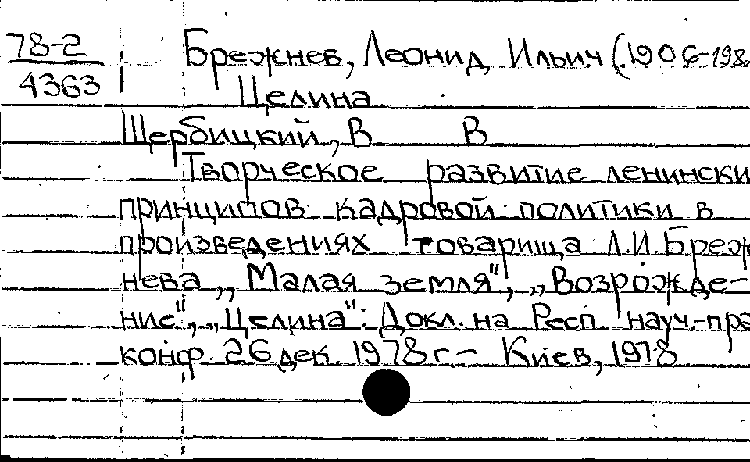 78-2 Брежнев, Леонид Ильич (1906-198
4363
Целина
Щербицкий, В В
Творческое развитие ленински
принципов кадровой политики в
произведениях товарища Л.И. Бреж
нева „Малая земля", „Возрожде-
ние", „Целина": Докл. на Респ. науч.-пра
конф. 26 дек. 1978 г. - Киев, 1978